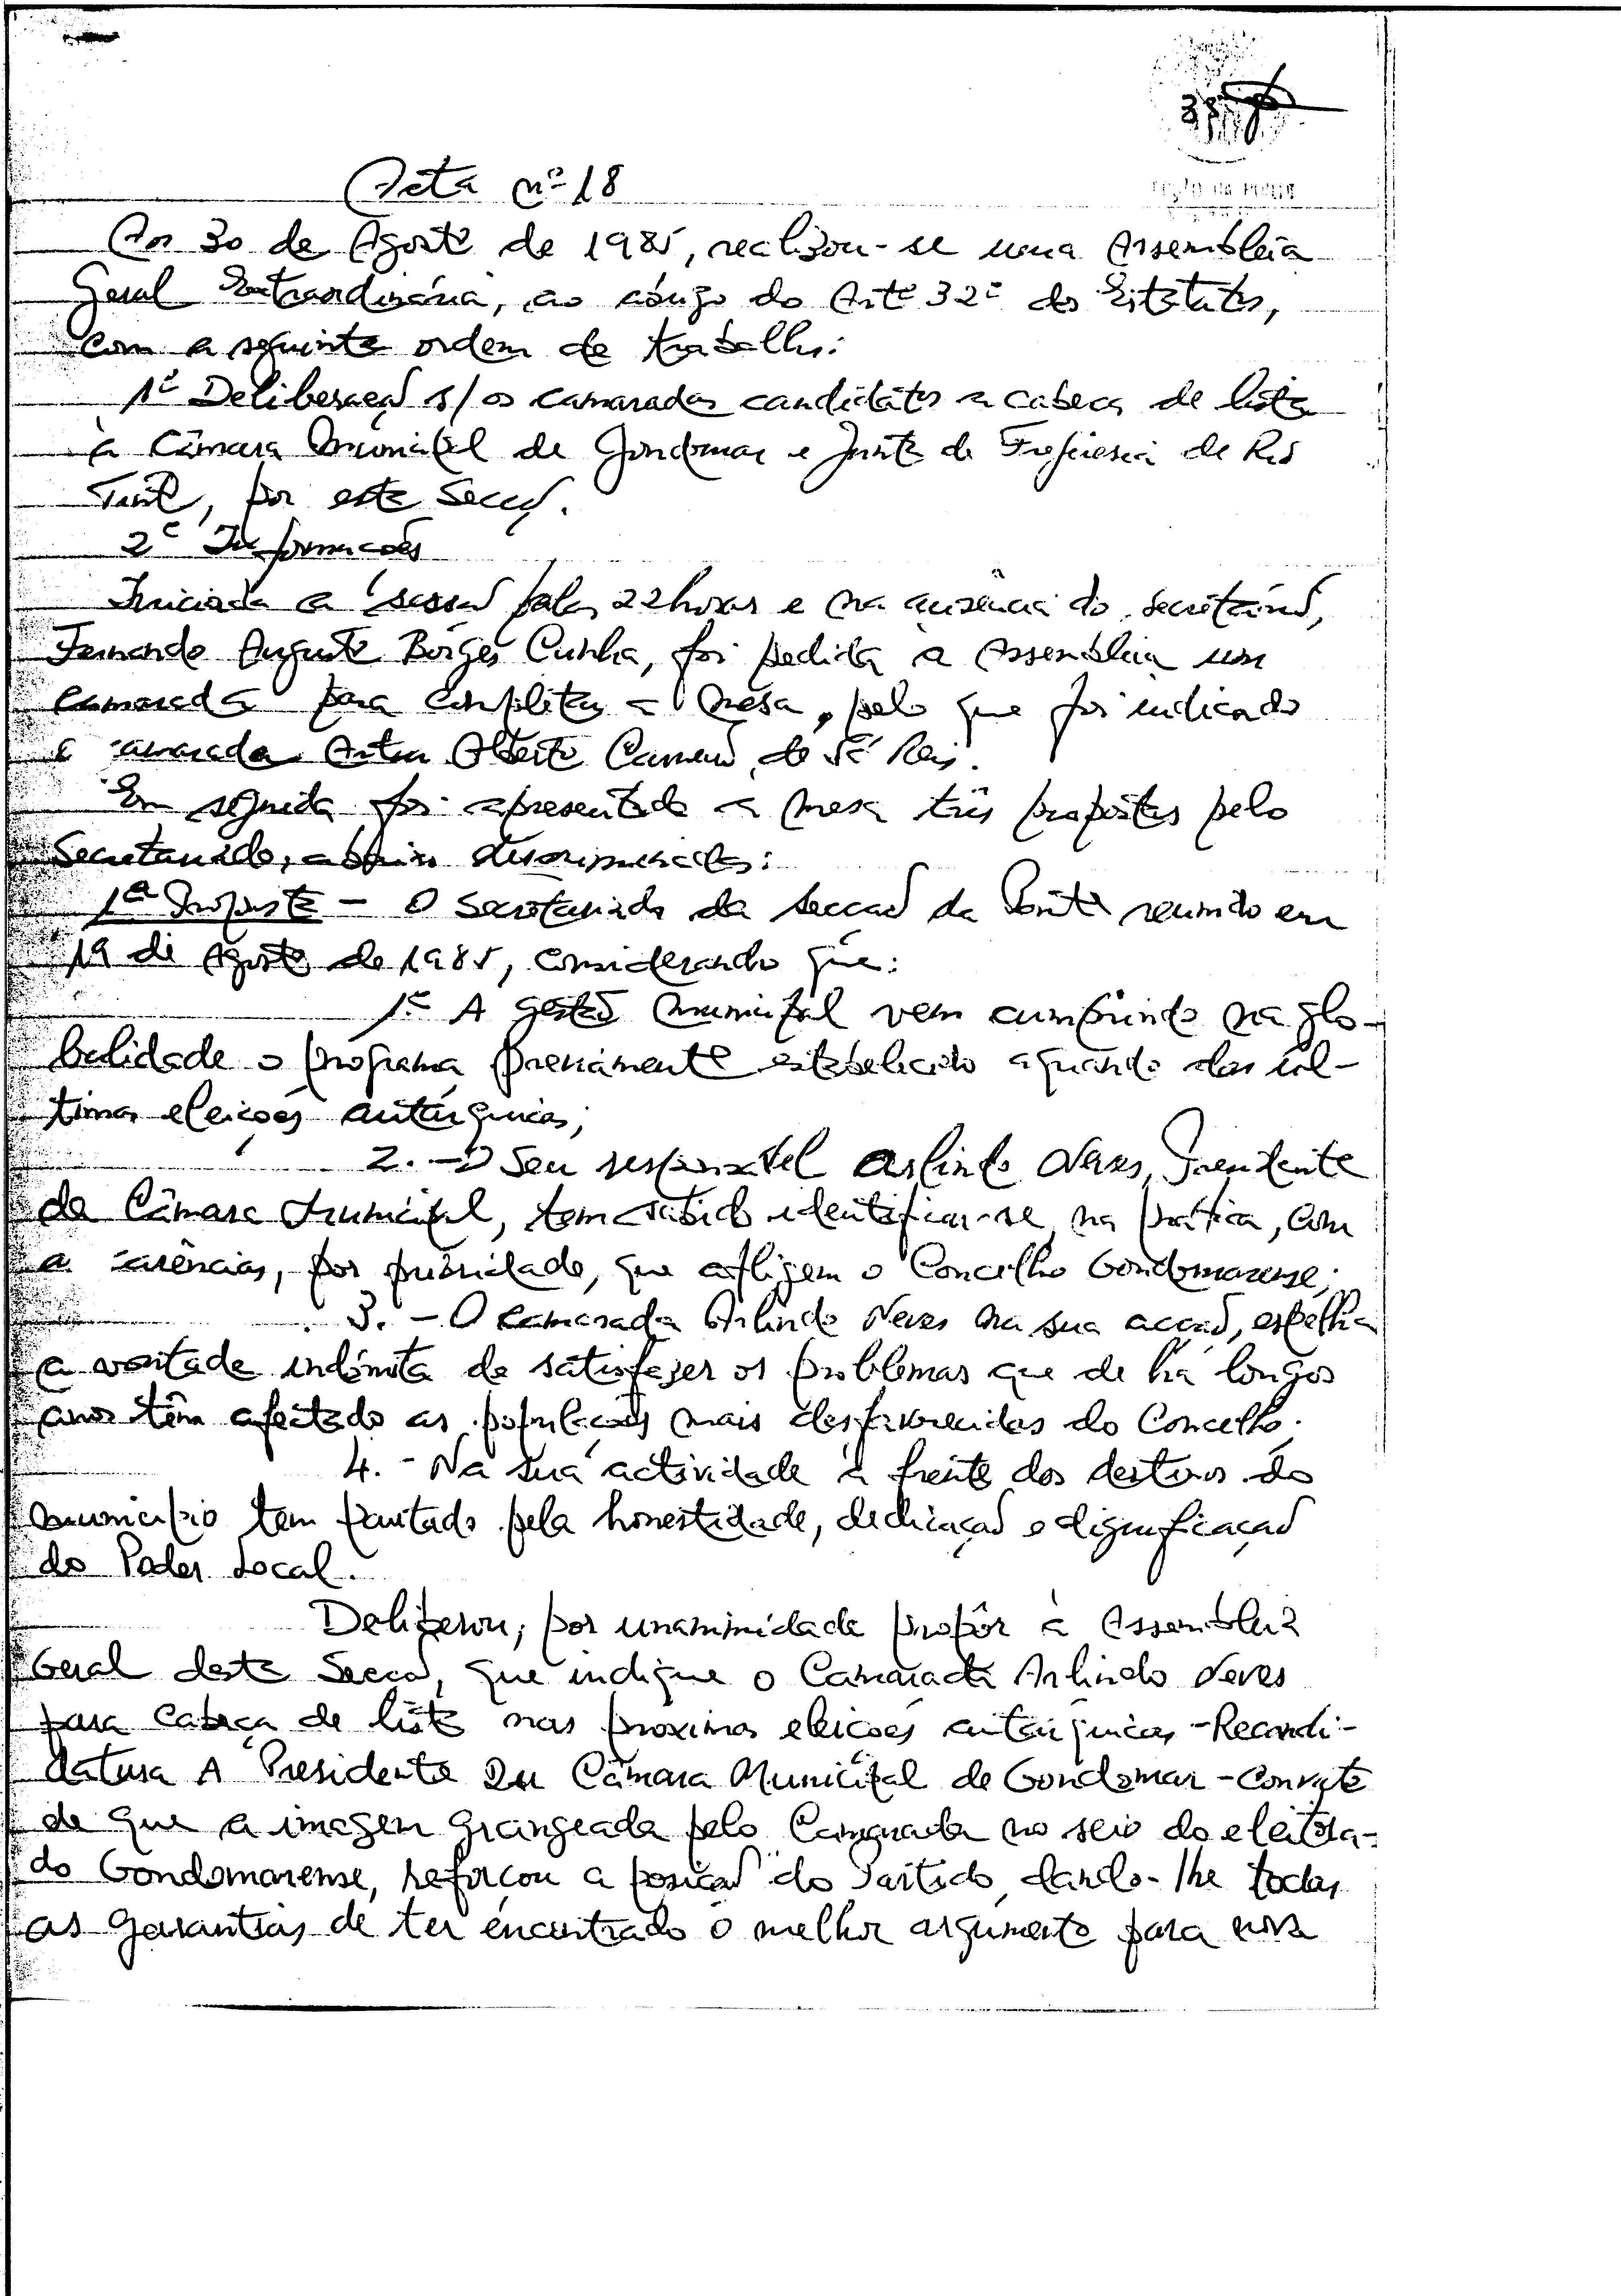 Acta nº 18
Aos 30 de Agosto de 1985, realizou-se uma Assembleia
Geral Extraordinária, ao abrigo do Artº 32º dos Estatutos,
com a seguinte ordem de trabalhos:
1º Deliberação s/ os camaradas candidatos a cabeça de lista
à Câmara Municipal de Gondomar e Junta de Freguesia de Rio
Tinto, por esta Secção.
2º Informações
Iniciada a sessão pelas 22 horas e na ausência do secretário,
Fernando Augusto Borges Cunha, foi pedida à Assembleia um
camarada para completar a Mesa, pelo que foi indicado
o camarada Artur Alberto de Sá Reis.
Em seguida foi apresentado a mesa três propostas pelo
Secretariado, abaixo discriminadas:
1ª Proposta - O Secretariado da Secção da Ponte reunido em
19 de Agosto de 1985, considerando que:
1º A gestão Municipal vem cumprindo na glo-
balidade o programa previamente estabelecido aquando das úl-
timas eleições autárquicas;
2. - O seu responsável Arlindo Neves, Presidente
da Câmara Municipal, tem sabido identificar-se, na prática, com
as carências, por prioridade, que afligem o Concelho Gondomarense;
3. - O camarada Arlindo Neves na sua acção, espelha
a vontade indómita de satisfazer os problemas que de há longos
anos têm afectado as populações mais desfavorecidas do Concelho.
4. - Na sua actividade à frente dos destinos do
Município tem pautado pela honestidade, dedicação e dignificação
do Poder Local.
Deliberou, por unanimidade propôr à Assembleia
Geral desta Secção, que indique o Camarada Arlindo Neves
para cabeça de lista nas próximas eleições autárquicas - Recandi-
datura A Presidente da Câmara Municipal de Gondomar - Convicto
de que a imagem grangeada pelo Camarada no seio do eleitora-
do Gondomarense, reforçou a posição do Partido, dando-lhe todas
as garantias de ter encontrado o melhor argumento para nova